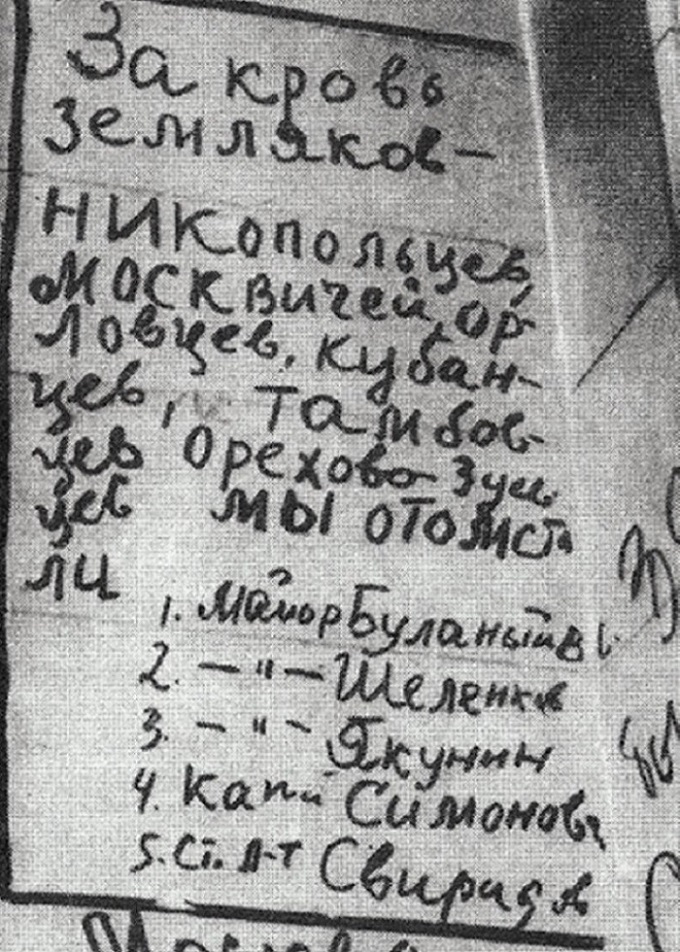 За кровь
земляков—
никопольцев,
москвичей, ор-
ловцев, кубан-
цев, тамбов-
цев Орехово-Зуев
цев мы отомсти
ли
1. Майор Буланый В
2. — " — Шеленков
3. — " — Якунин
4. Кап. Симонов
5. Ст. Л-т Свиридов